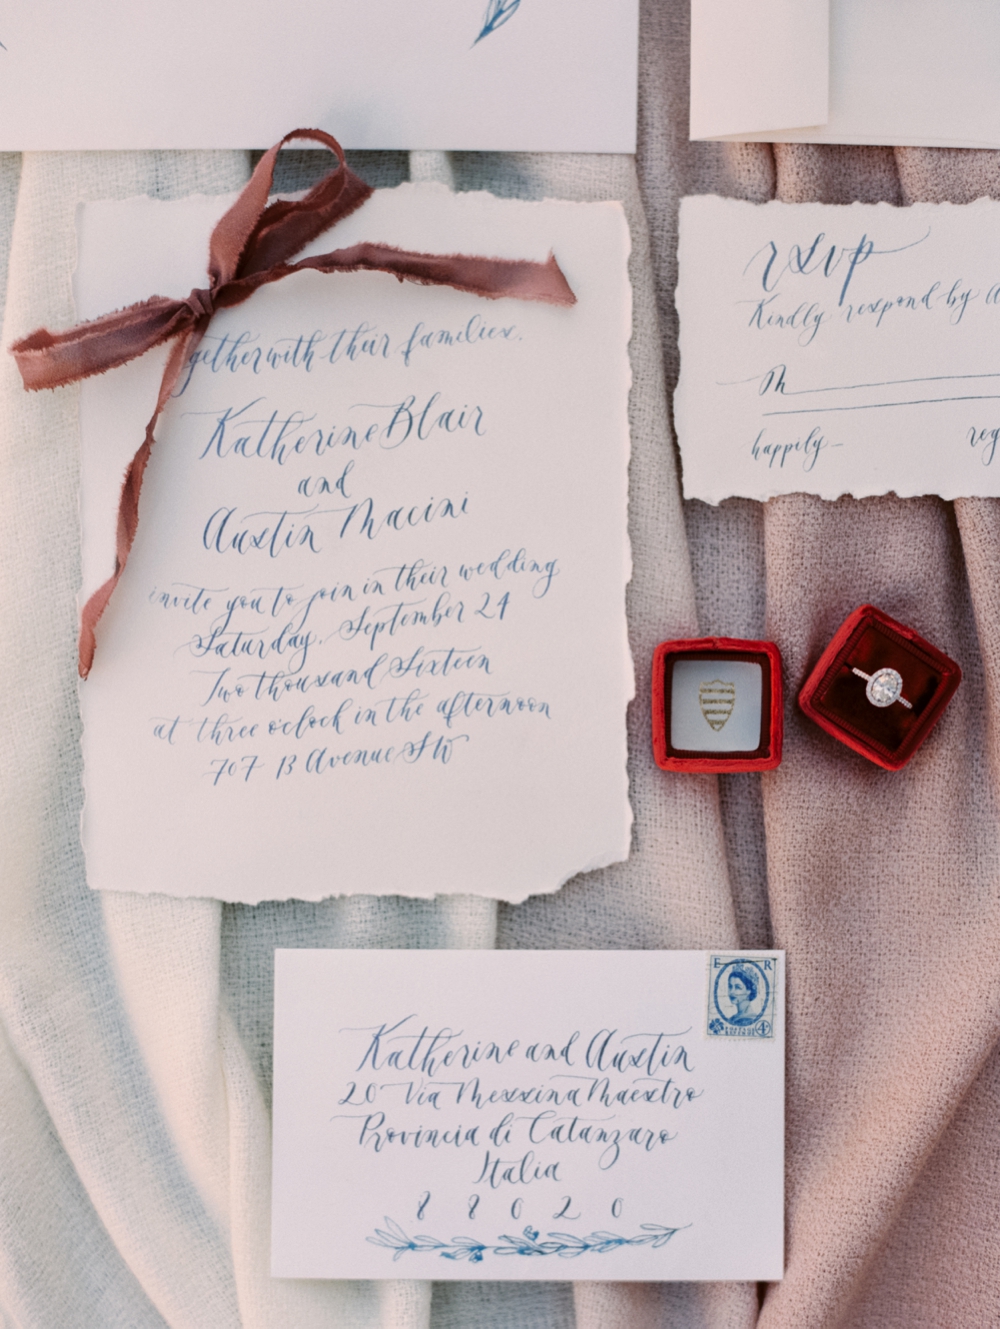 gether with their families.
Katherine Blair
and
Austin Macini
invite you to join in their wedding
Saturday, September 24
Two thousand Sixteen
at three o'clock in the afternoon
707 13 Avenue SW
rsvp
Kindly respond by
M
happily
reg
E R
Katherine and Austin
20 Via Messina Maestro
Provincia di Catanzaro
Italia
8 8 0 2 0